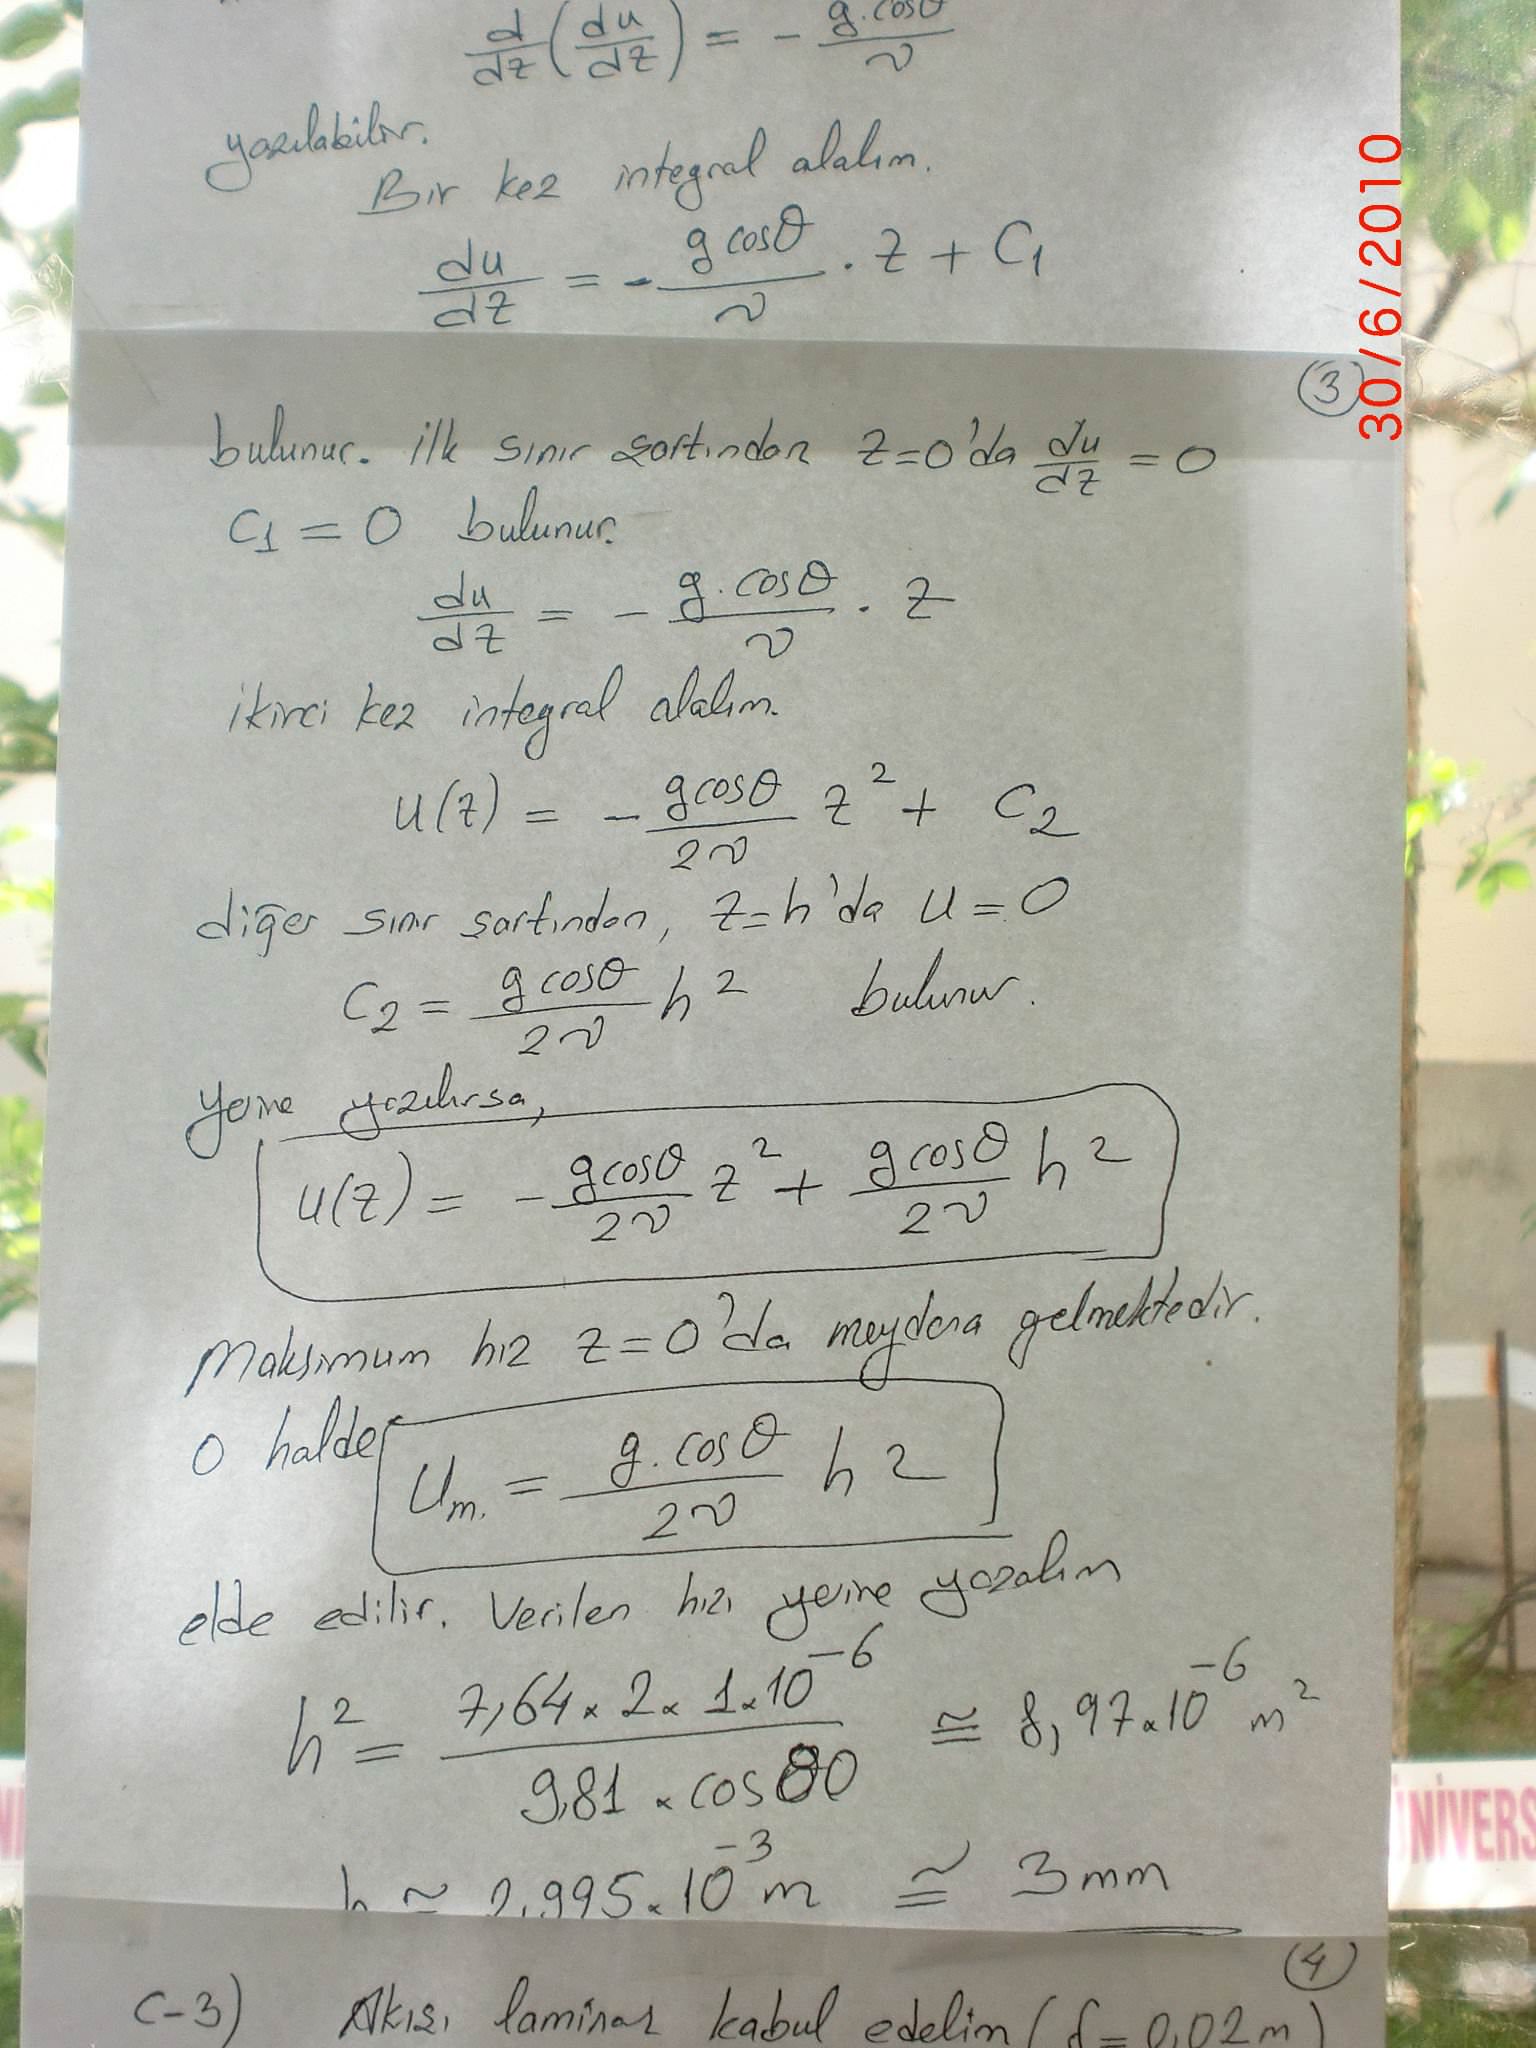 d/dz (du/dz) = - g.cosθ/ν
yazılabilir.
Bir kez integral alalım.
du/dz = - gcosθ/ν . z + C1
3
bulunur. ilk sınır şartından z=0'da du/dz = 0
C1 = 0 bulunur.
du/dz = - g.cosθ/ν . z
ikinci kez integral alalım.
u(z) = - gcosθ/2ν z² + C2
diğer sınır şartından, z=h'da u=0
C2 = gcosθ/2ν h² bulunur.
yerine yazılırsa,
u(z) = - gcosθ/2ν z² + gcosθ/2ν h²
Maksimum hız z=0'da meydana gelmektedir.
O halde Um. = g.cosθ/2ν h²
elde edilir. Verilen hızı yerine yazalım
h² = 7,64 x 2 x 1x10⁻⁶ / 9,81 x cos80 ≅ 8,97x10⁻⁶ m²
h ≃ 2,995x10⁻³ m ≅ 3mm
4
C-3) Akışı laminar kabul edelim (d=0,02m)
30/6/2010
NİVERS
Nİ